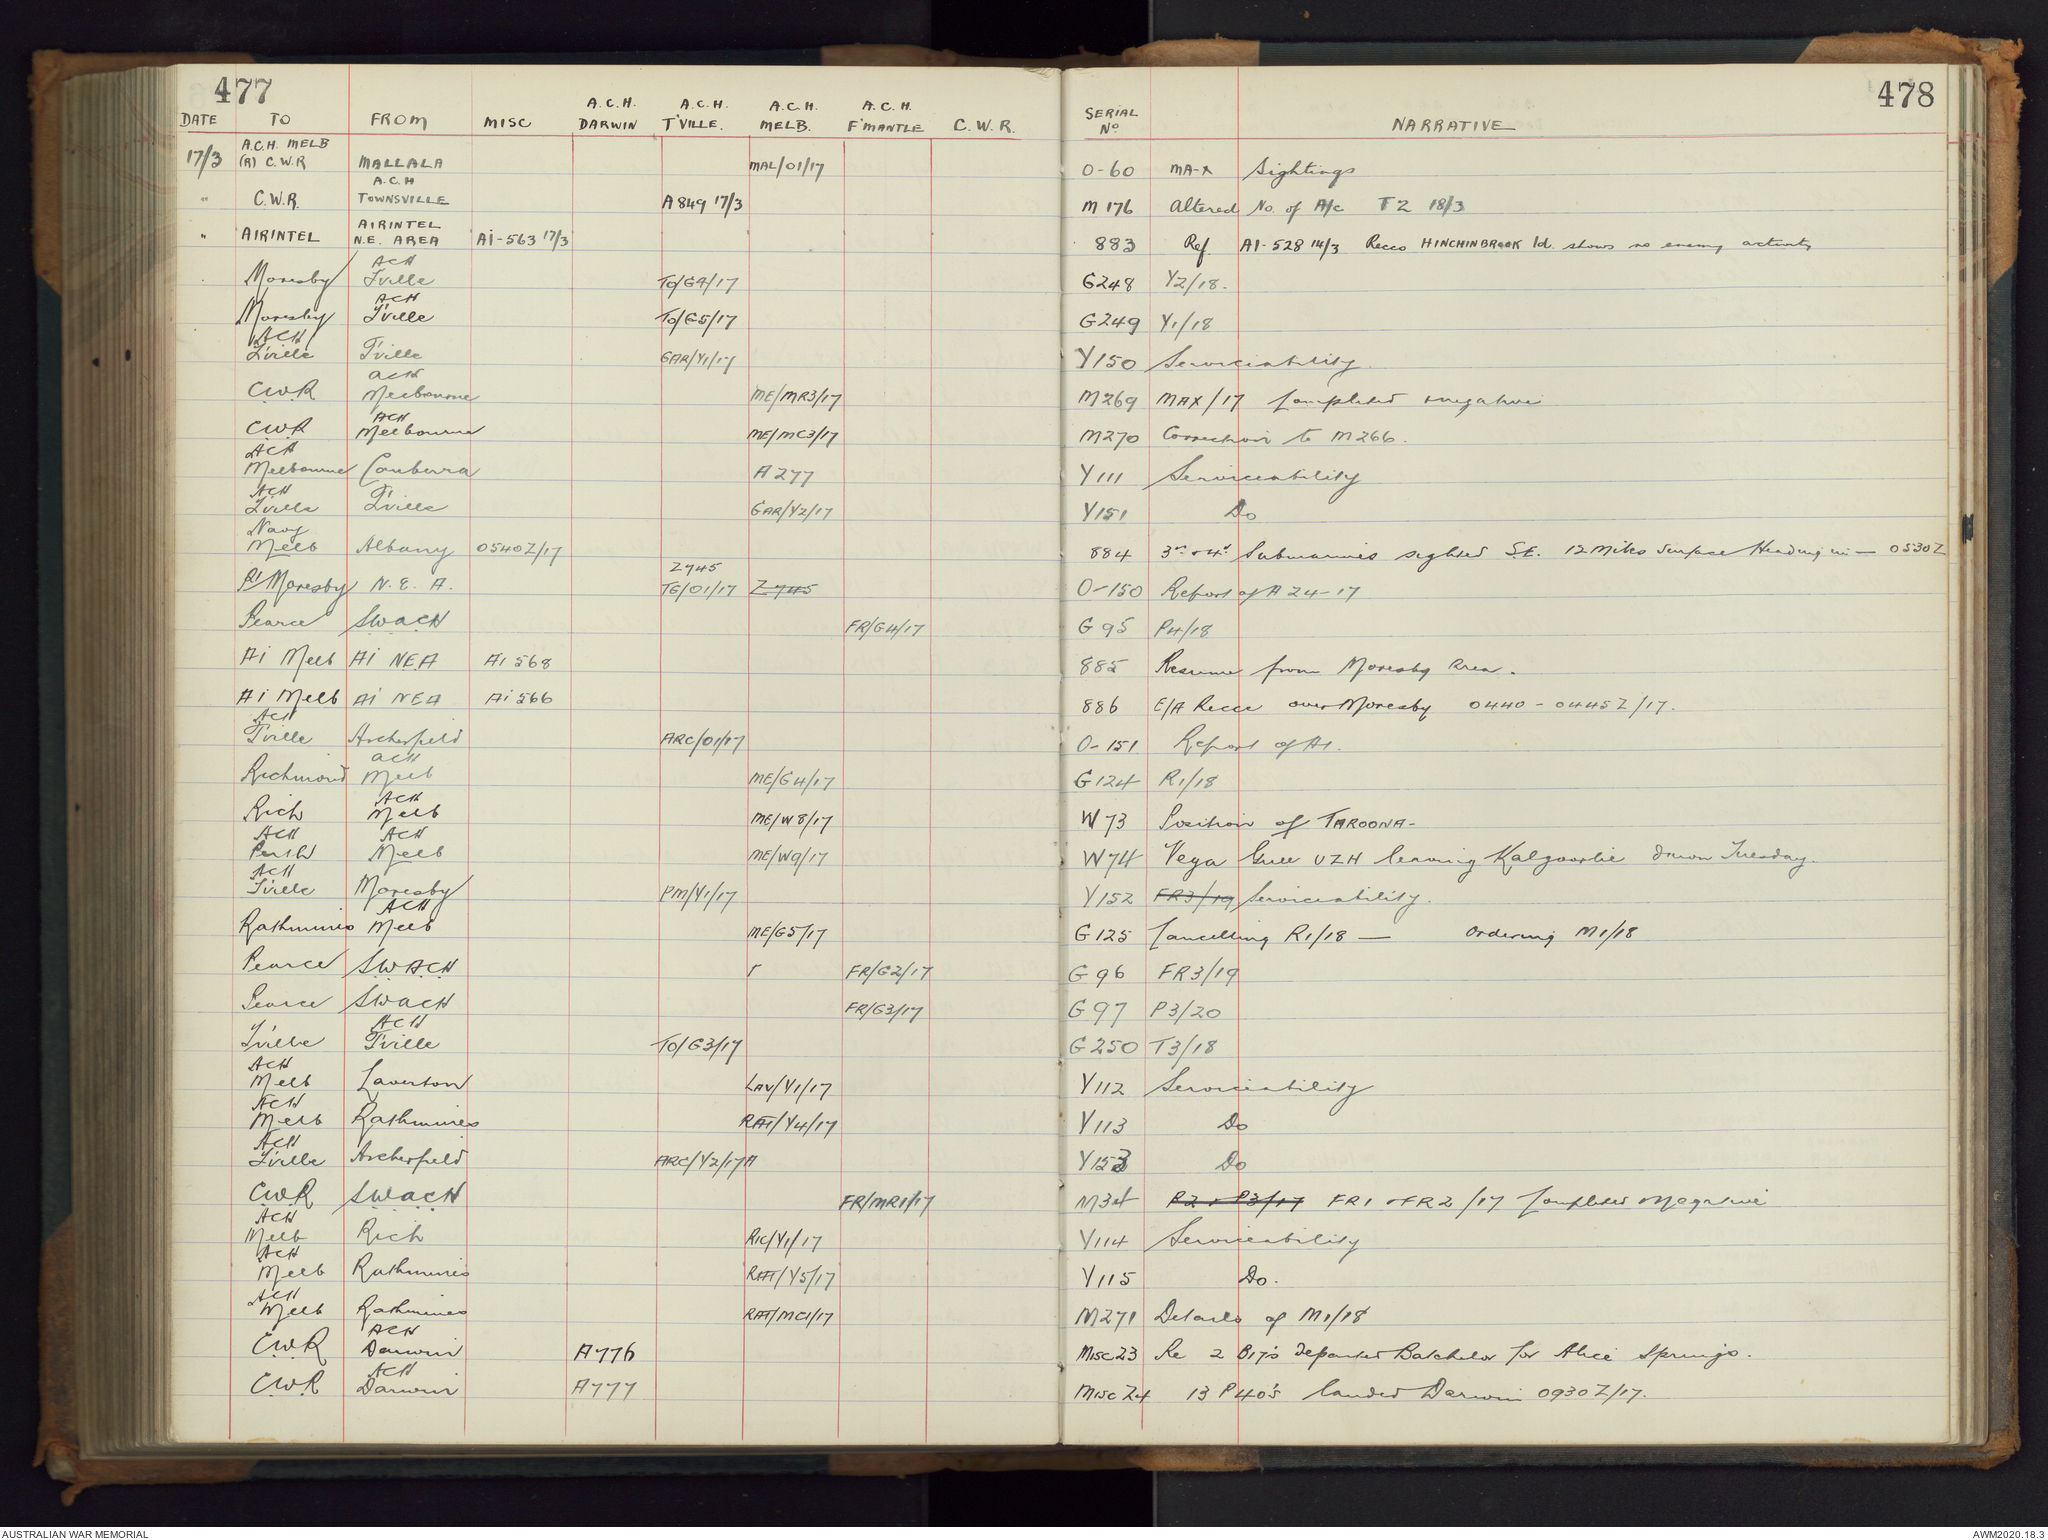 477
478
DATE TO FROM MISC A.C.H. DARWIN A.C.H. T'VILLE. A.C.H. MELB. A.C.H. F'MANTLE C.W.R. SERIAL No NARRATIVE
17/3 A.C.H. MELB (R) C.W.R MALLALA MAL/01/17 O-60 MA-X Sightings
" C.W.R. A.C.H TOWNSVILLE A849 17/3 M176 Altered No. of A/c T2 18/3
" AIRINTEL AIRINTEL N.E. AREA AI-563 17/3 883 Ref. AI-528 14/3 Recco HINCHINBROOK Id. shows no enemy activity
Moresby ACH T'ville TO/G4/17 G248 Y2/18.
Moresby ACH T'ville TO/G5/17 G249 Y1/18
ACH T'ville T'ville GAR/Y1/17 Y150 Serviceability.
CWR ACH Melbourne ME/MR3/17 M269 MAX/17 Completed negative
CWR ACH Melbourne ME/MC3/17 M270 Correction to M266.
ACH Melbourne Canberra A277 Y111 Serviceability
ACH T'ville T'ville GAR/Y2/17 Y151 Do
Navy Melb Albany 0540Z/17 884 3rd & 4th Submarines sighted S.E. 12 Miles Surface Heading in — 0530Z
Pt Moresby N.E.A. Z745 TG/01/17 Z745 O-150 Report of A24-17
Pearce SWACH FR/G4/17 G95 P4/18
Ai Melb Ai NEA Ai 568 885 Resume from Moresby Area.
Ai Melb Ai NEA Ai 566 886 E/A Recce over Moresby 0440-0445Z/17.
ACH T'ville Archerfield ARC/01/17 O-151 Report of A1.
Richmond ACH Melb ME/G4/17 G124 R1/18
Rich ACH Melb ME/W8/17 W73 Position of TAROONA-
ACH Perth ACH Melb ME/W9/17 W74 Vega Gull VZH leaving Kalgoorlie dawn Tuesday.
ACH T'ville Moresby PM/Y1/17 Y152 FR3/19 Serviceability.
Rathmines ACH Melb ME/G5/17 G125 Cancelling R1/18 — Ordering M1/18
Pearce S.W.A.C.H FR/G2/17 G96 FR3/19
Pearce SWACH FR/G3/17 G97 P3/20
T'ville ACH T'ville TO/G3/17 G250 T3/18
ACH Melb Laverton LAV/Y1/17 Y112 Serviceability
ACH Melb Rathmines RAT/Y4/17 Y113 Do
ACH T'ville Archerfield ARC/Y2/17A Y153 Do
CWR SWACH FR/MR1/17 M34 R2 + P3/17 FR1 + FR2/17 Completed Negative
ACH Melb Rich RIC/Y1/17 Y114 Serviceability
ACH Melb Rathmines RAT/Y5/17 Y115 Do.
ACH Melb Rathmines RAT/MC1/17 M271 Details of M1/18
CWR ACH Darwin A776 Misc23 Re 2 B17's departed Batchelor for Alice Springs.
CWR ACH Darwin A777 Misc 24 13 P40's landed Darwin 0930Z/17.
AUSTRALIAN WAR MEMORIAL
AWM2020.18.3